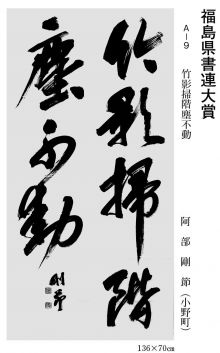 福島県書連大賞
A－9 竹影掃階塵不動
阿部剛節(小野町)
竹影掃階
塵不動
剛節
136×70㎝